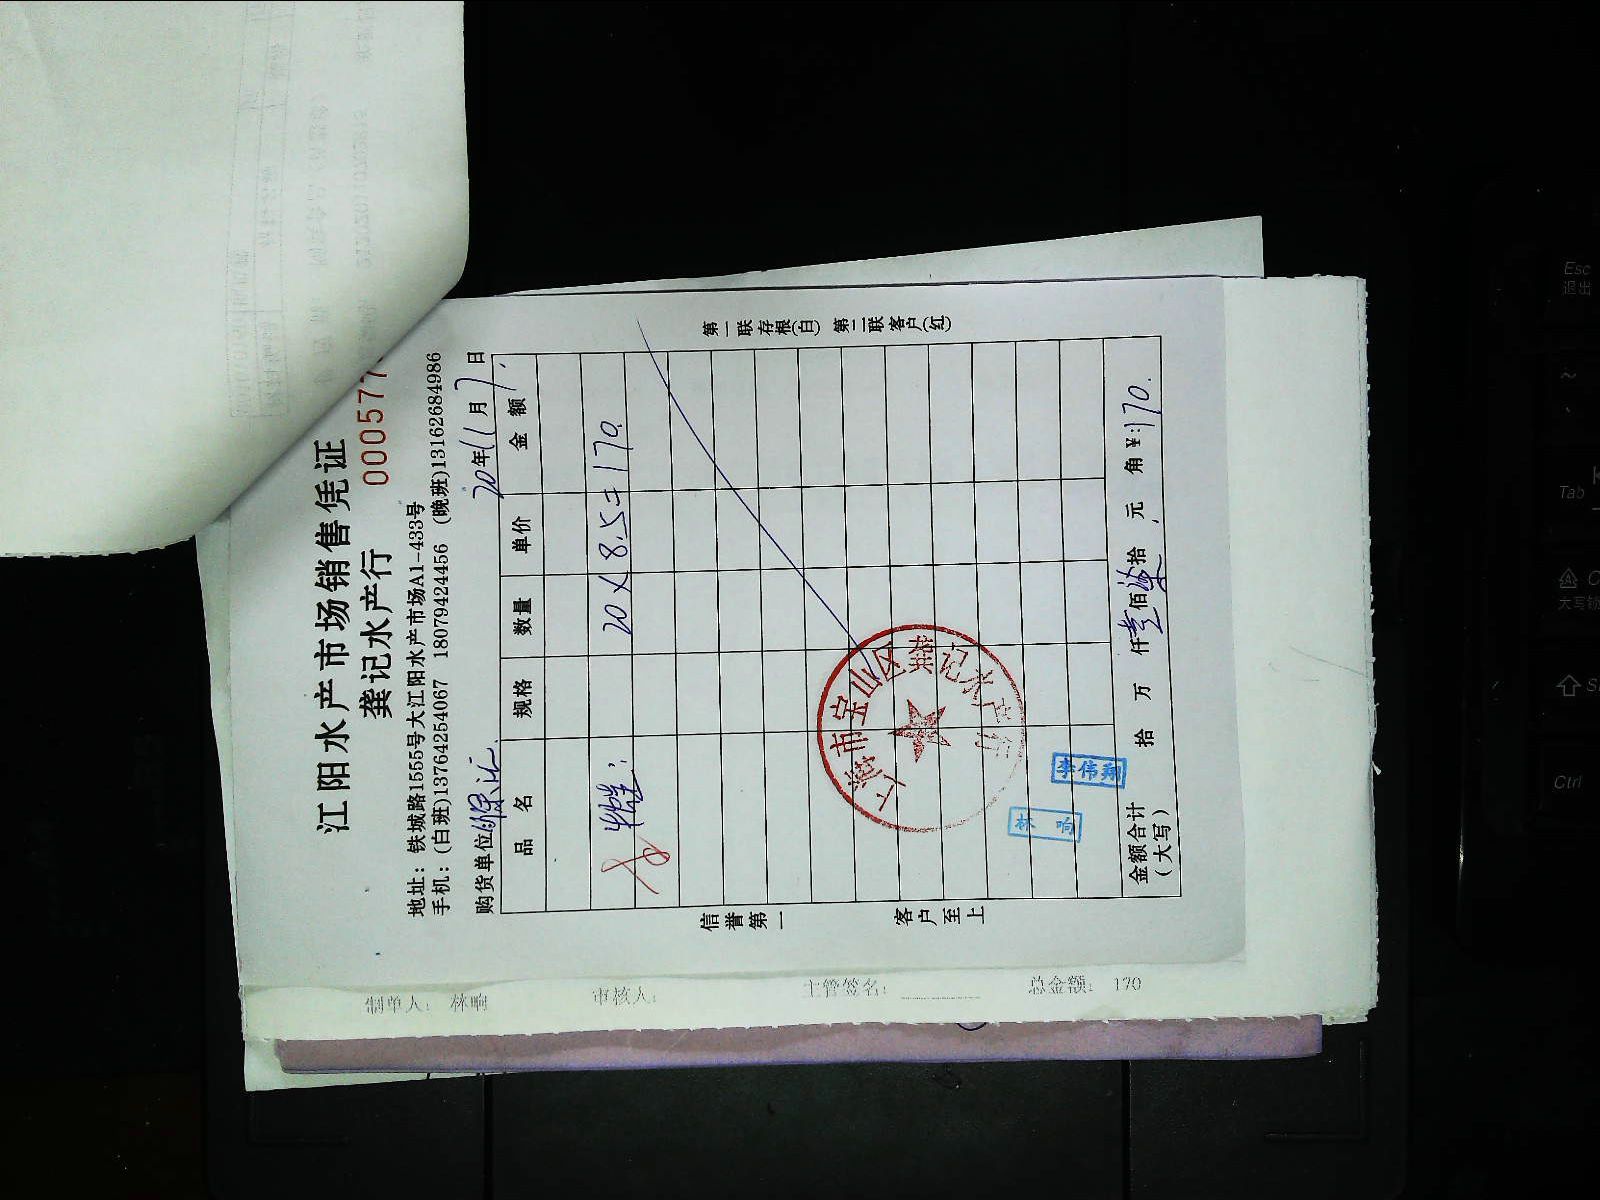 江阳水产市场销售凭证
龚记水产行 000577
地址：铁城路1555号大江阳水产市场A1-433号
手机：(白班)13764254067 18079424456 (晚班)13162684986
购货单位 20年11月7日
品名 规格 数量 单价 金额
20 × 8.5 = 170.
第一联存根(白) 第二联客户(红)
信誉第一
客户至上
上海市宝山区龚记水产行
李伟翔
林响
金额合计
(大写) 拾 万 仟壹佰柒拾 元 角 ¥:170.
制单人： 林响 审核人： 主管签名： 总金额： 170
Esc
退出
Tab
大写锁
Ctrl